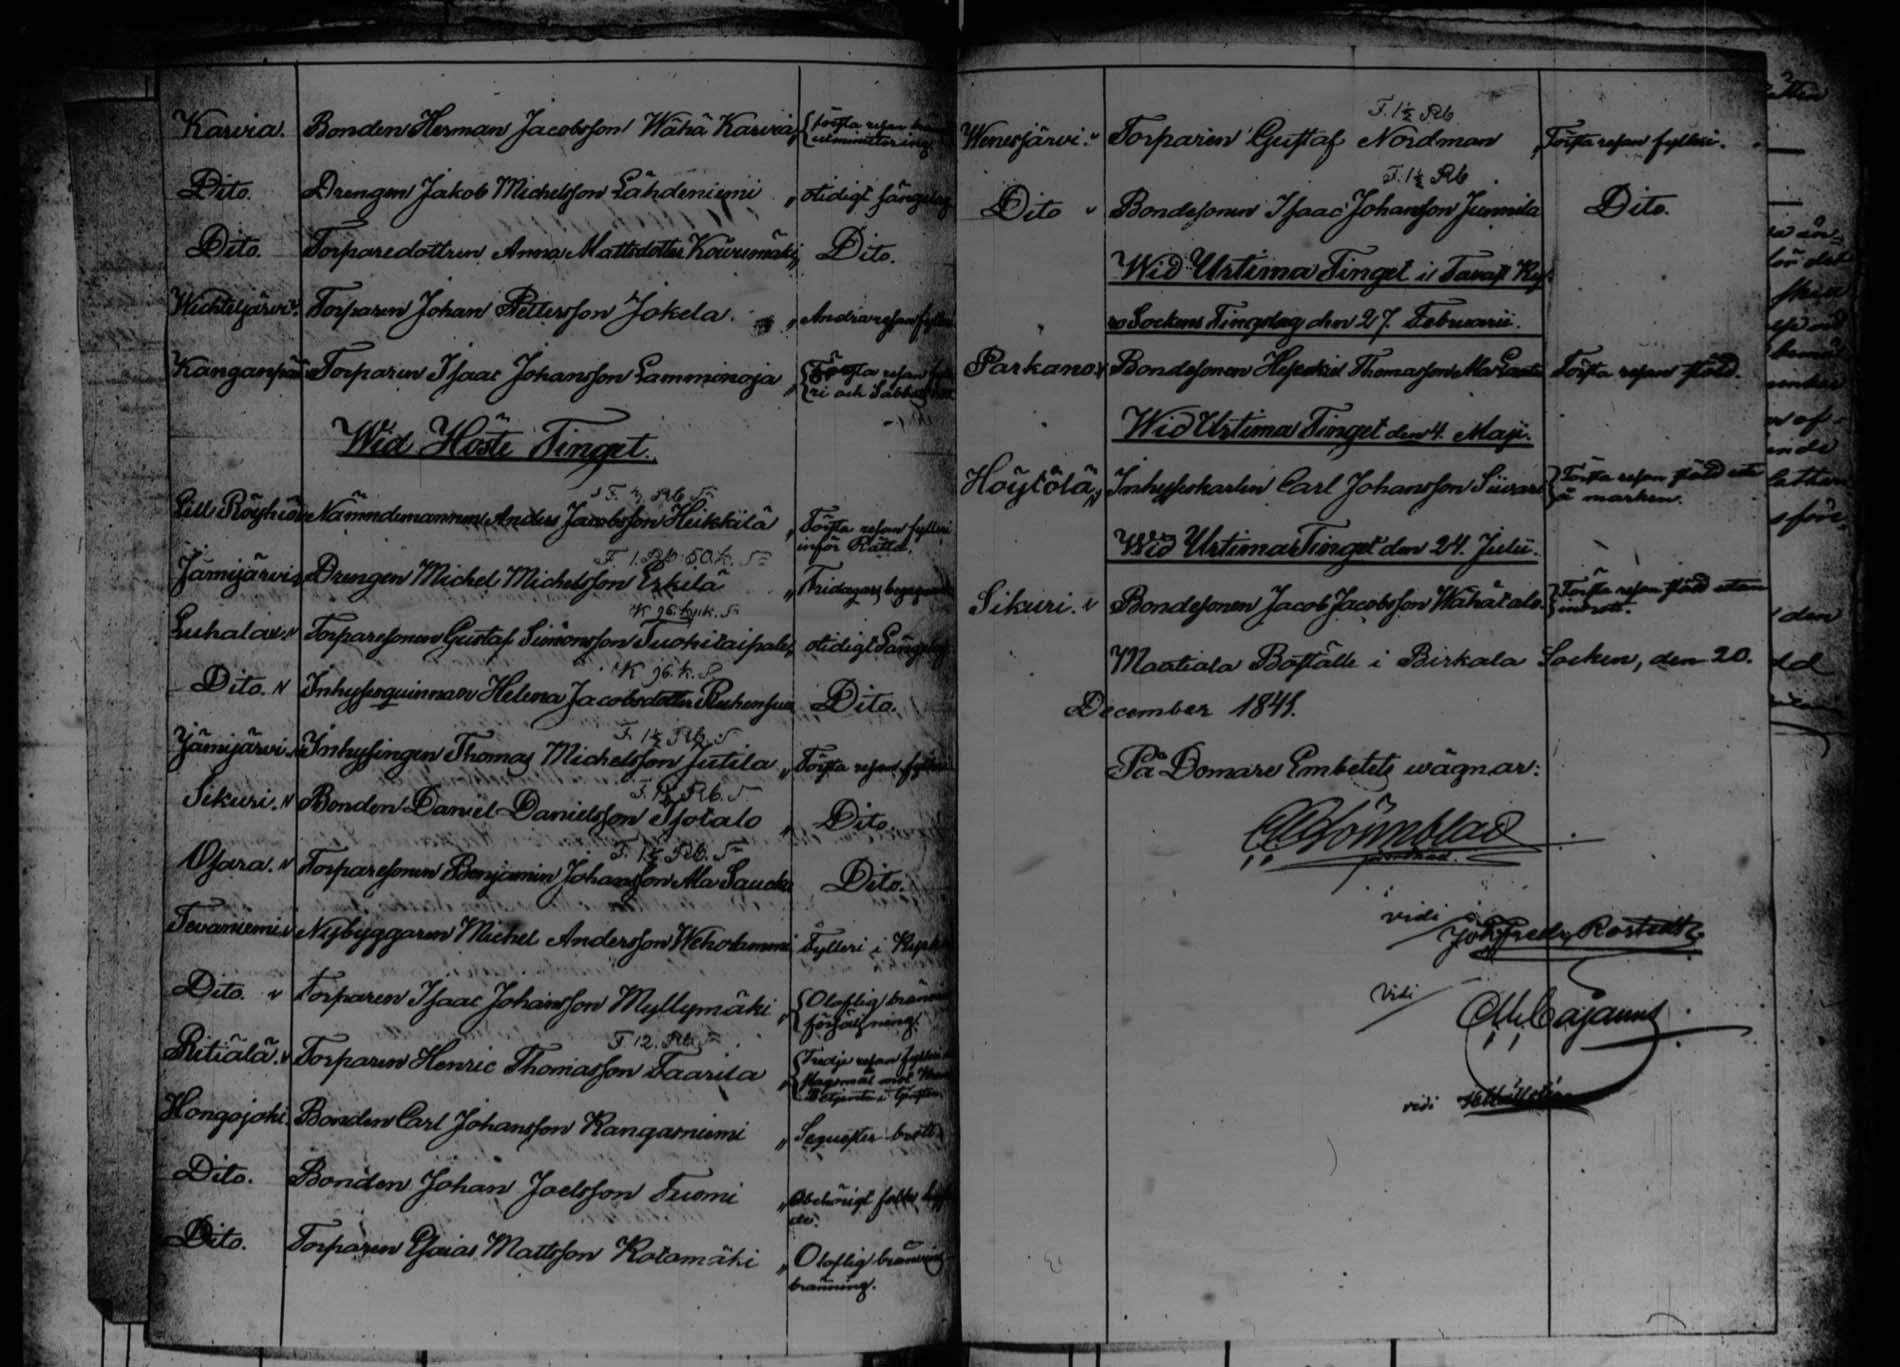 Karvia. Bonden Herman Jacobsson Wähä Karvia, första resan
utminutering
Dito. Drengen Jakob Michelsson Lähdeniemi " otidigt sängelag
Dito. Torparedottren Anna Mattsdotter Kouvumäki " Dito.
Wichteljärvi. Torparen Johan Pettersson Jokela. " Andra resan fylleri
Kanganpää Torparen Isaac Johansson Lamminoja " Första resan
ri och Sabbats
Wid Höste Tinget.
F. 3 Rb S
Lill Röyhiö Nämndemannen Anders Jacobsson Heikkilä " Första resan fylleri
inför Rätta.
F. 1. Rb 50. k. S
Jämijärvi Drengen Michel Michelsson Erkilä "
K 96. kpk. S
Luhalax. Torparesonen Gustaf Simonsson Tuohitaipale, otidigt Sängelag
K 96. k. S
Dito. Inhysesquinnan Helena Jacobsdotter Dito.
F. 1½ Rb. S
Jämijärvi. Inhysingen Thomas Michelsson Jutila " Första resan fylleri
F. 1½ Rb. S
Sikuri. Bonden Daniel Danielsson Isotalo " Dito
F. 1½ Rb. S
Ojara. Torparesonen Benjamin Johansson Ala Saucko Dito.
Tevaniemi Nybyggaren Michel Andersson Wehokammi Fylleri i
Dito. Torparen Isaac Johansson Myllymäki " Oloflig bränvins
försäljning.
F. 12. Rb. S
Ritiälä. Torparen Henric Thomasson Taarila " Tredje resan fylleri
slagsmål mot
Betjente i
Hongojoki. Bonden Carl Johansson Kangasniemi " Sequester brott
Dito. Bonden Johan Joelsson Tuomi " Obehörigt folks
de.
Dito. Torparen Esaias Mattsson Kotamäki " Oloflig bränvins
bränning.
F. 1½ Rb
Wenesjärvi. Torparen Gustaf Nordman " Första resan fylleri.
F. 1½ Rb
Dito Bondesonen Isaac Johansson Junnila Dito.
Wid Urtima Tinget i Tavast Ky=
ro Sockens Tingslag den 27. Februarii.
Parkano. Bondesonen Thomasson Första resan stöld.
Wid Urtima Tinget den 4. Maji.
Höytölä " Inhyseskarlen Carl Johansson Första resan stöld
å marken.
Wid Urtima Tinget den 24. Julii.
Sikuri. Bondesonen Jacob Jacobsson Wähätalo. Första resan stöld utan
inbrott.
Maatiala Boställe i Birkala Socken, den 20.
December 1841.
På Domare Embetets wägnar:
vidi
vidi
Cajanus
vidi